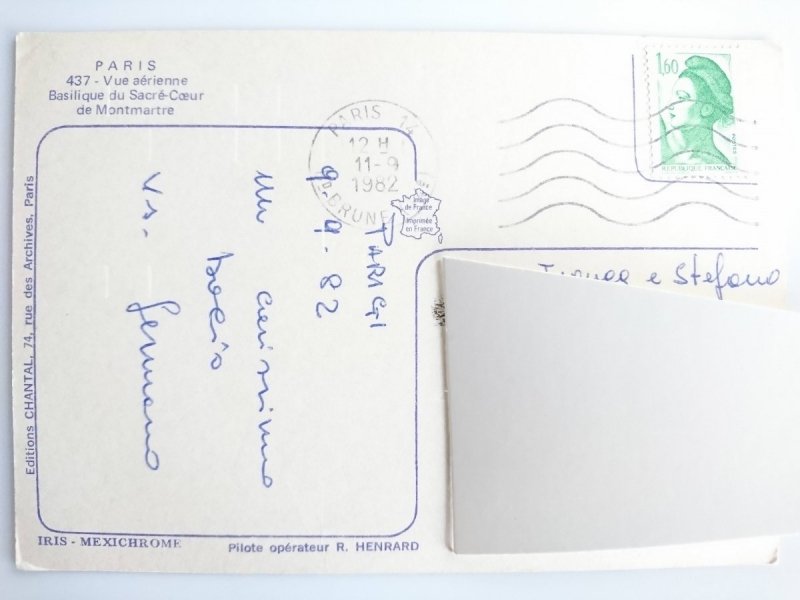 PARIS
437 - Vue aérienne
Basilique du Sacré-Cœur
de Montmartre
Editions CHANTAL, 74, rue des Archives, Paris
PARIS 14
12 H
11-9
1982
Bd BRUNE
1,60
POSTES
REPUBLIQUE FRANÇAISE
Image
de France
Imprimée
en France
PARIGI
9.9.82
un carissimo
bacio
Vs. Germano
e Stefano
IRIS - MEXICHROME
Pilote opérateur R. HENRARD